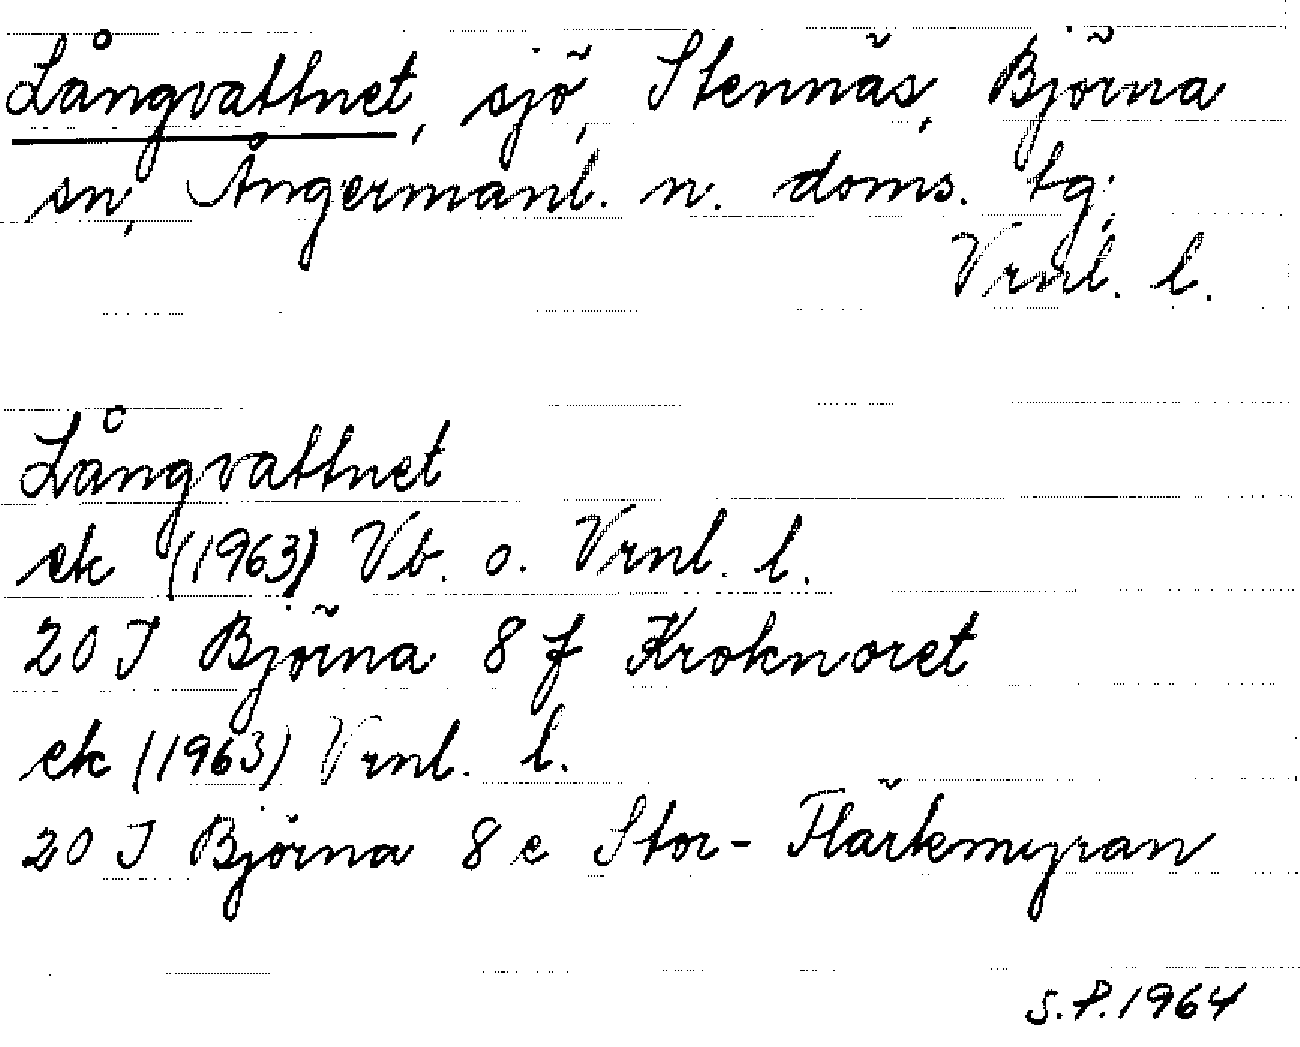 Långvattnet, sjö, Stennäs, Björna
sn, Ångermanl. n. doms. tg;
Vrnl. l.
Långvattnet
ek (1963) Vb. o. Vrnl. l.
20 J Björna 8 f Kroknoret
ek (1963) Vrnl. l.
20 J Björna 8 e Stor-Flärkemyran
S.P. 1964